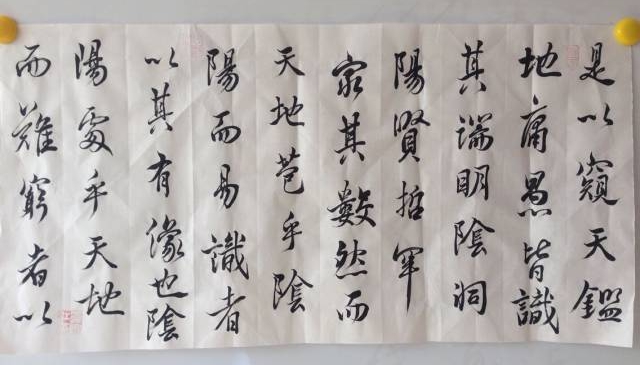 是以窺天鑑
地庸愚皆識
其端明陰洞
陽賢哲罕
窮其數然而
天地苞乎陰
陽而易識者
以其有像也陰
陽處乎天地
而難窮者以